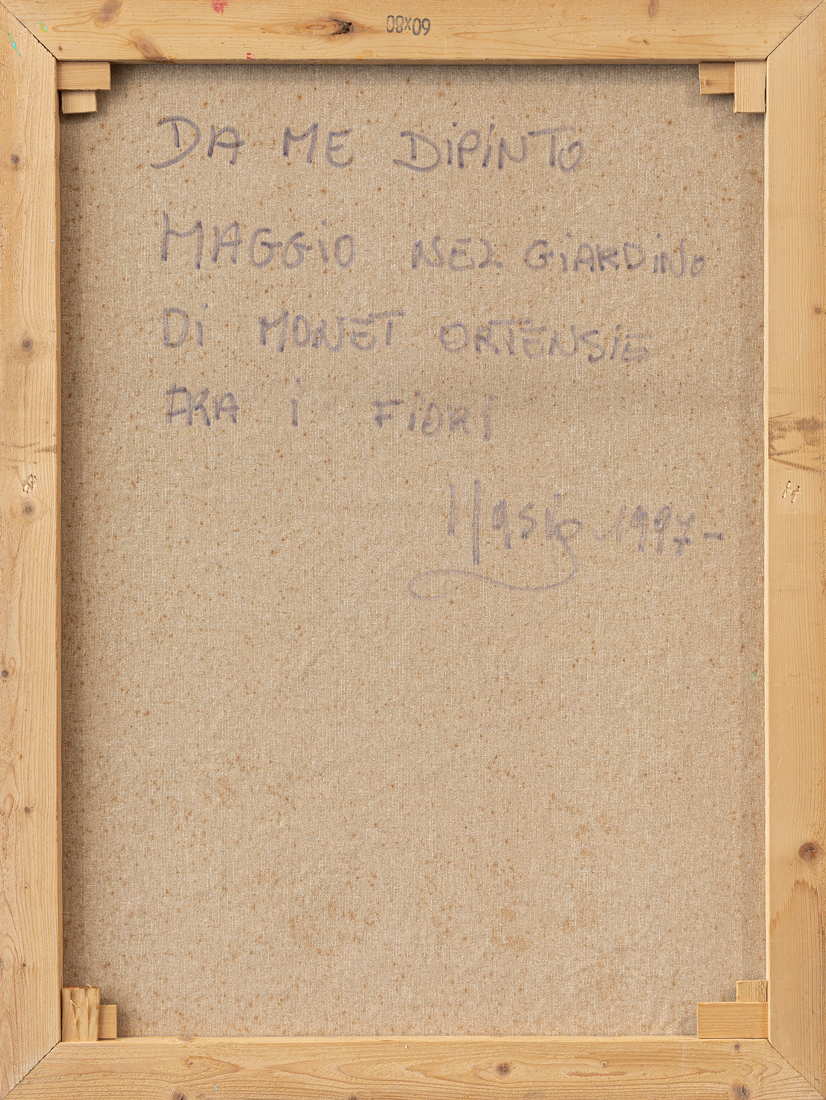 60x80
DA ME DiPiNTO
MAGGiO NEL GiARDiNO
Di MONET ORTENSiE
FRA i FiORi
1997-